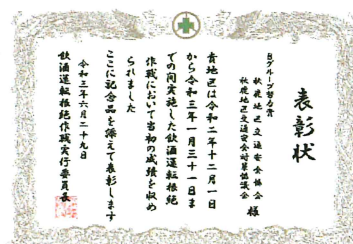 表彰状
Bグループ努力賞
秋鹿地区交通安全協会
秋鹿地区交通安全対策協議会 様
貴地区は令和二年十二月一日
から令和三年一月三十一日ま
での間実施した飲酒運転根絶
作戦において当初の成績を収め
られました
ここに記念品を添えて表彰します
令和三年六月二十九日
飲酒運転根絶作戦実行委員長